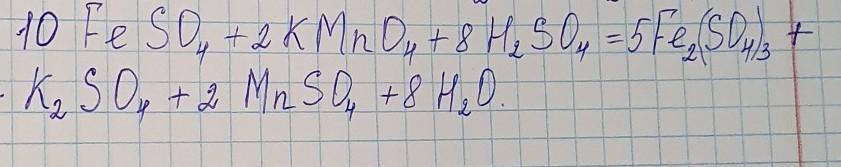 10 FeSO₄ + 2KMnO₄ + 8H₂SO₄ = 5Fe₂(SO₄)₃ +
K₂SO₄ + 2 MnSO₄ + 8H₂O.